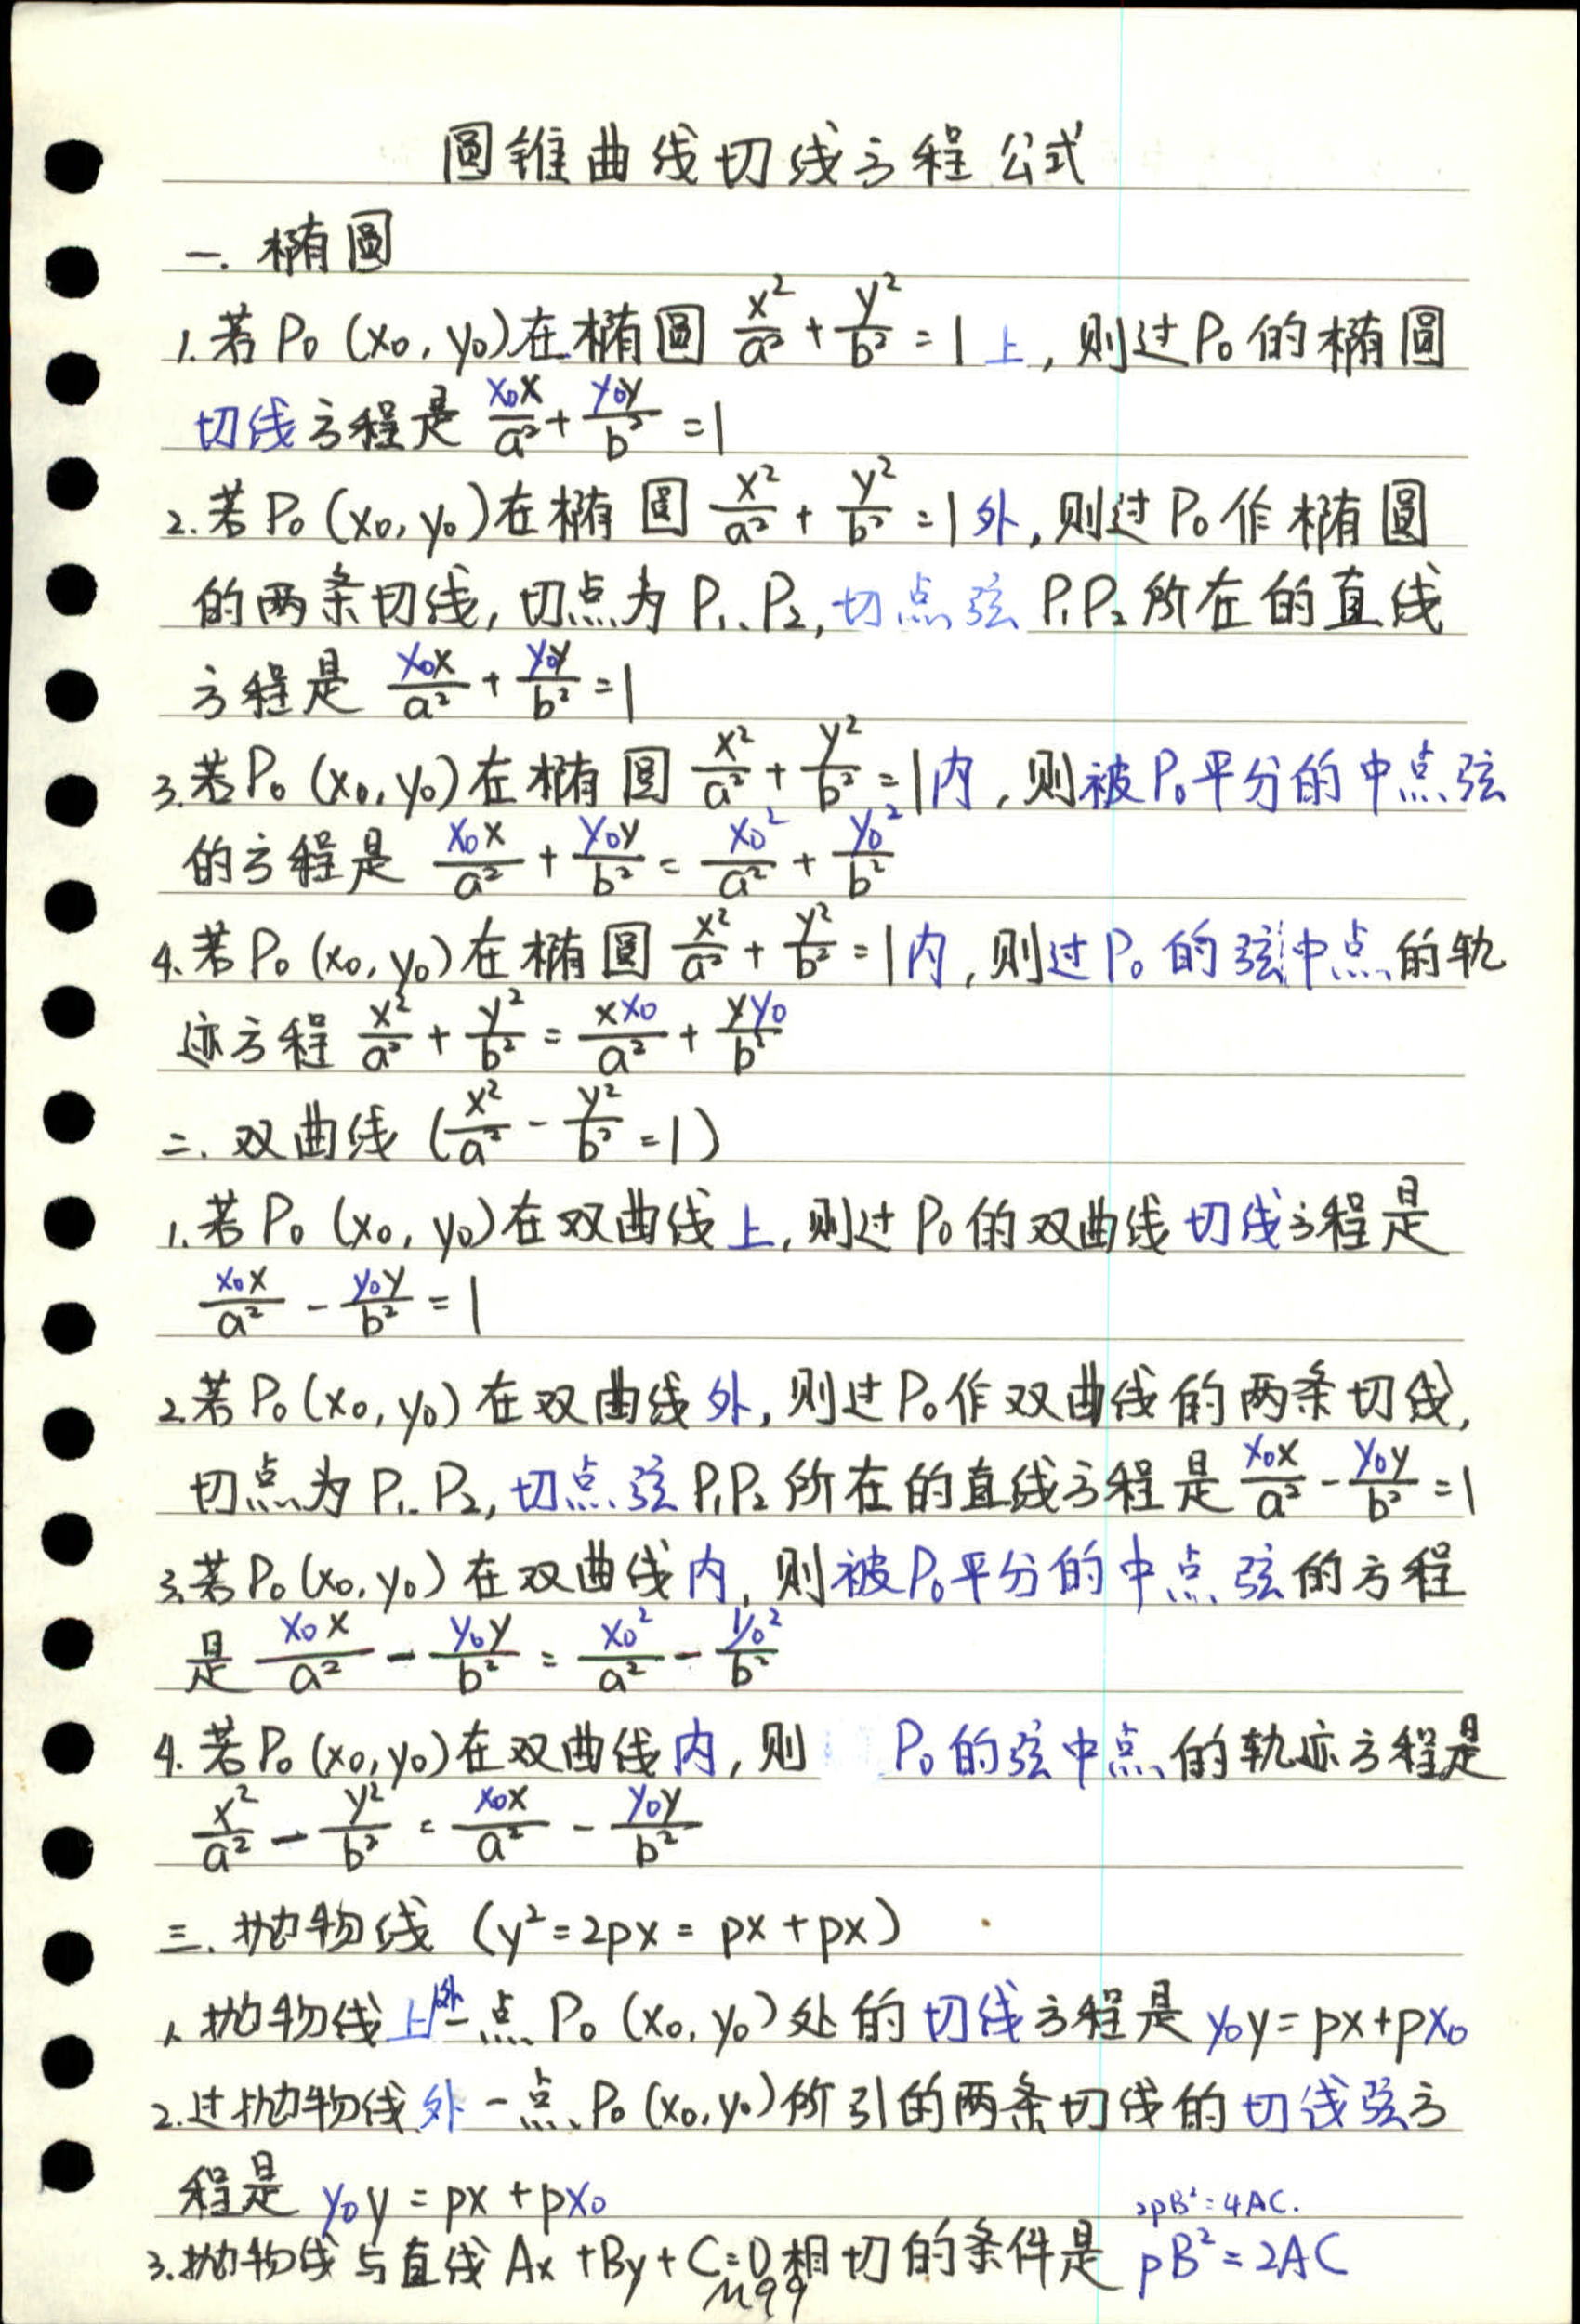 圆锥曲线切线方程公式
一. 椭圆
1. 若 P₀ (x₀, y₀)在椭圆 x²/a² + y²/b² = 1 上, 则过P₀的椭圆
切线方程是 x₀x/a² + y₀y/b² = 1
2. 若 P₀ (x₀, y₀)在椭圆 x²/a² + y²/b² = 1 外, 则过P₀作椭圆
的两条切线, 切点为 P₁、P₂, 切点弦 P₁P₂ 所在的直线
方程是 x₀x/a² + y₀y/b² = 1
3. 若P₀ (x₀, y₀)在椭圆 x²/a² + y²/b² = 1内, 则被P₀平分的中点弦
的方程是 x₀x/a² + y₀y/b² = x₀²/a² + y₀²/b²
4. 若P₀ (x₀, y₀)在椭圆 x²/a² + y²/b² = 1内, 则过P₀的弦中点的轨
迹方程 x²/a² + y²/b² = xx₀/a² + yy₀/b²
二. 双曲线 (x²/a² - y²/b² = 1)
1. 若 P₀ (x₀, y₀)在双曲线上, 则过P₀的双曲线切线方程是
x₀x/a² - y₀y/b² = 1
2. 若P₀(x₀, y₀)在双曲线外, 则过P₀作双曲线的两条切线,
切点为 P₁、P₂, 切点弦P₁P₂所在的直线方程是 x₀x/a² - y₀y/b² = 1
3. 若P₀(x₀, y₀)在双曲线内, 则被P₀平分的中点弦的方程
是 x₀x/a² - y₀y/b² = x₀²/a² - y₀²/b²
4. 若P₀(x₀, y₀)在双曲线内, 则 P₀的弦中点的轨迹方程是
x²/a² - y²/b² = x₀x/a² - y₀y/b²
三. 抛物线 (y² = 2px = px + px)
1. 抛物线上一点 P₀ (x₀, y₀)处的切线方程是 y₀y = px + px₀
2. 过抛物线外一点P₀(x₀, y₀)所引的两条切线的切线弦方
程是 y₀y = px + px₀
2pB² = 4AC.
3. 抛物线与直线Ax + By + C = 0相切的条件是 pB² = 2AC